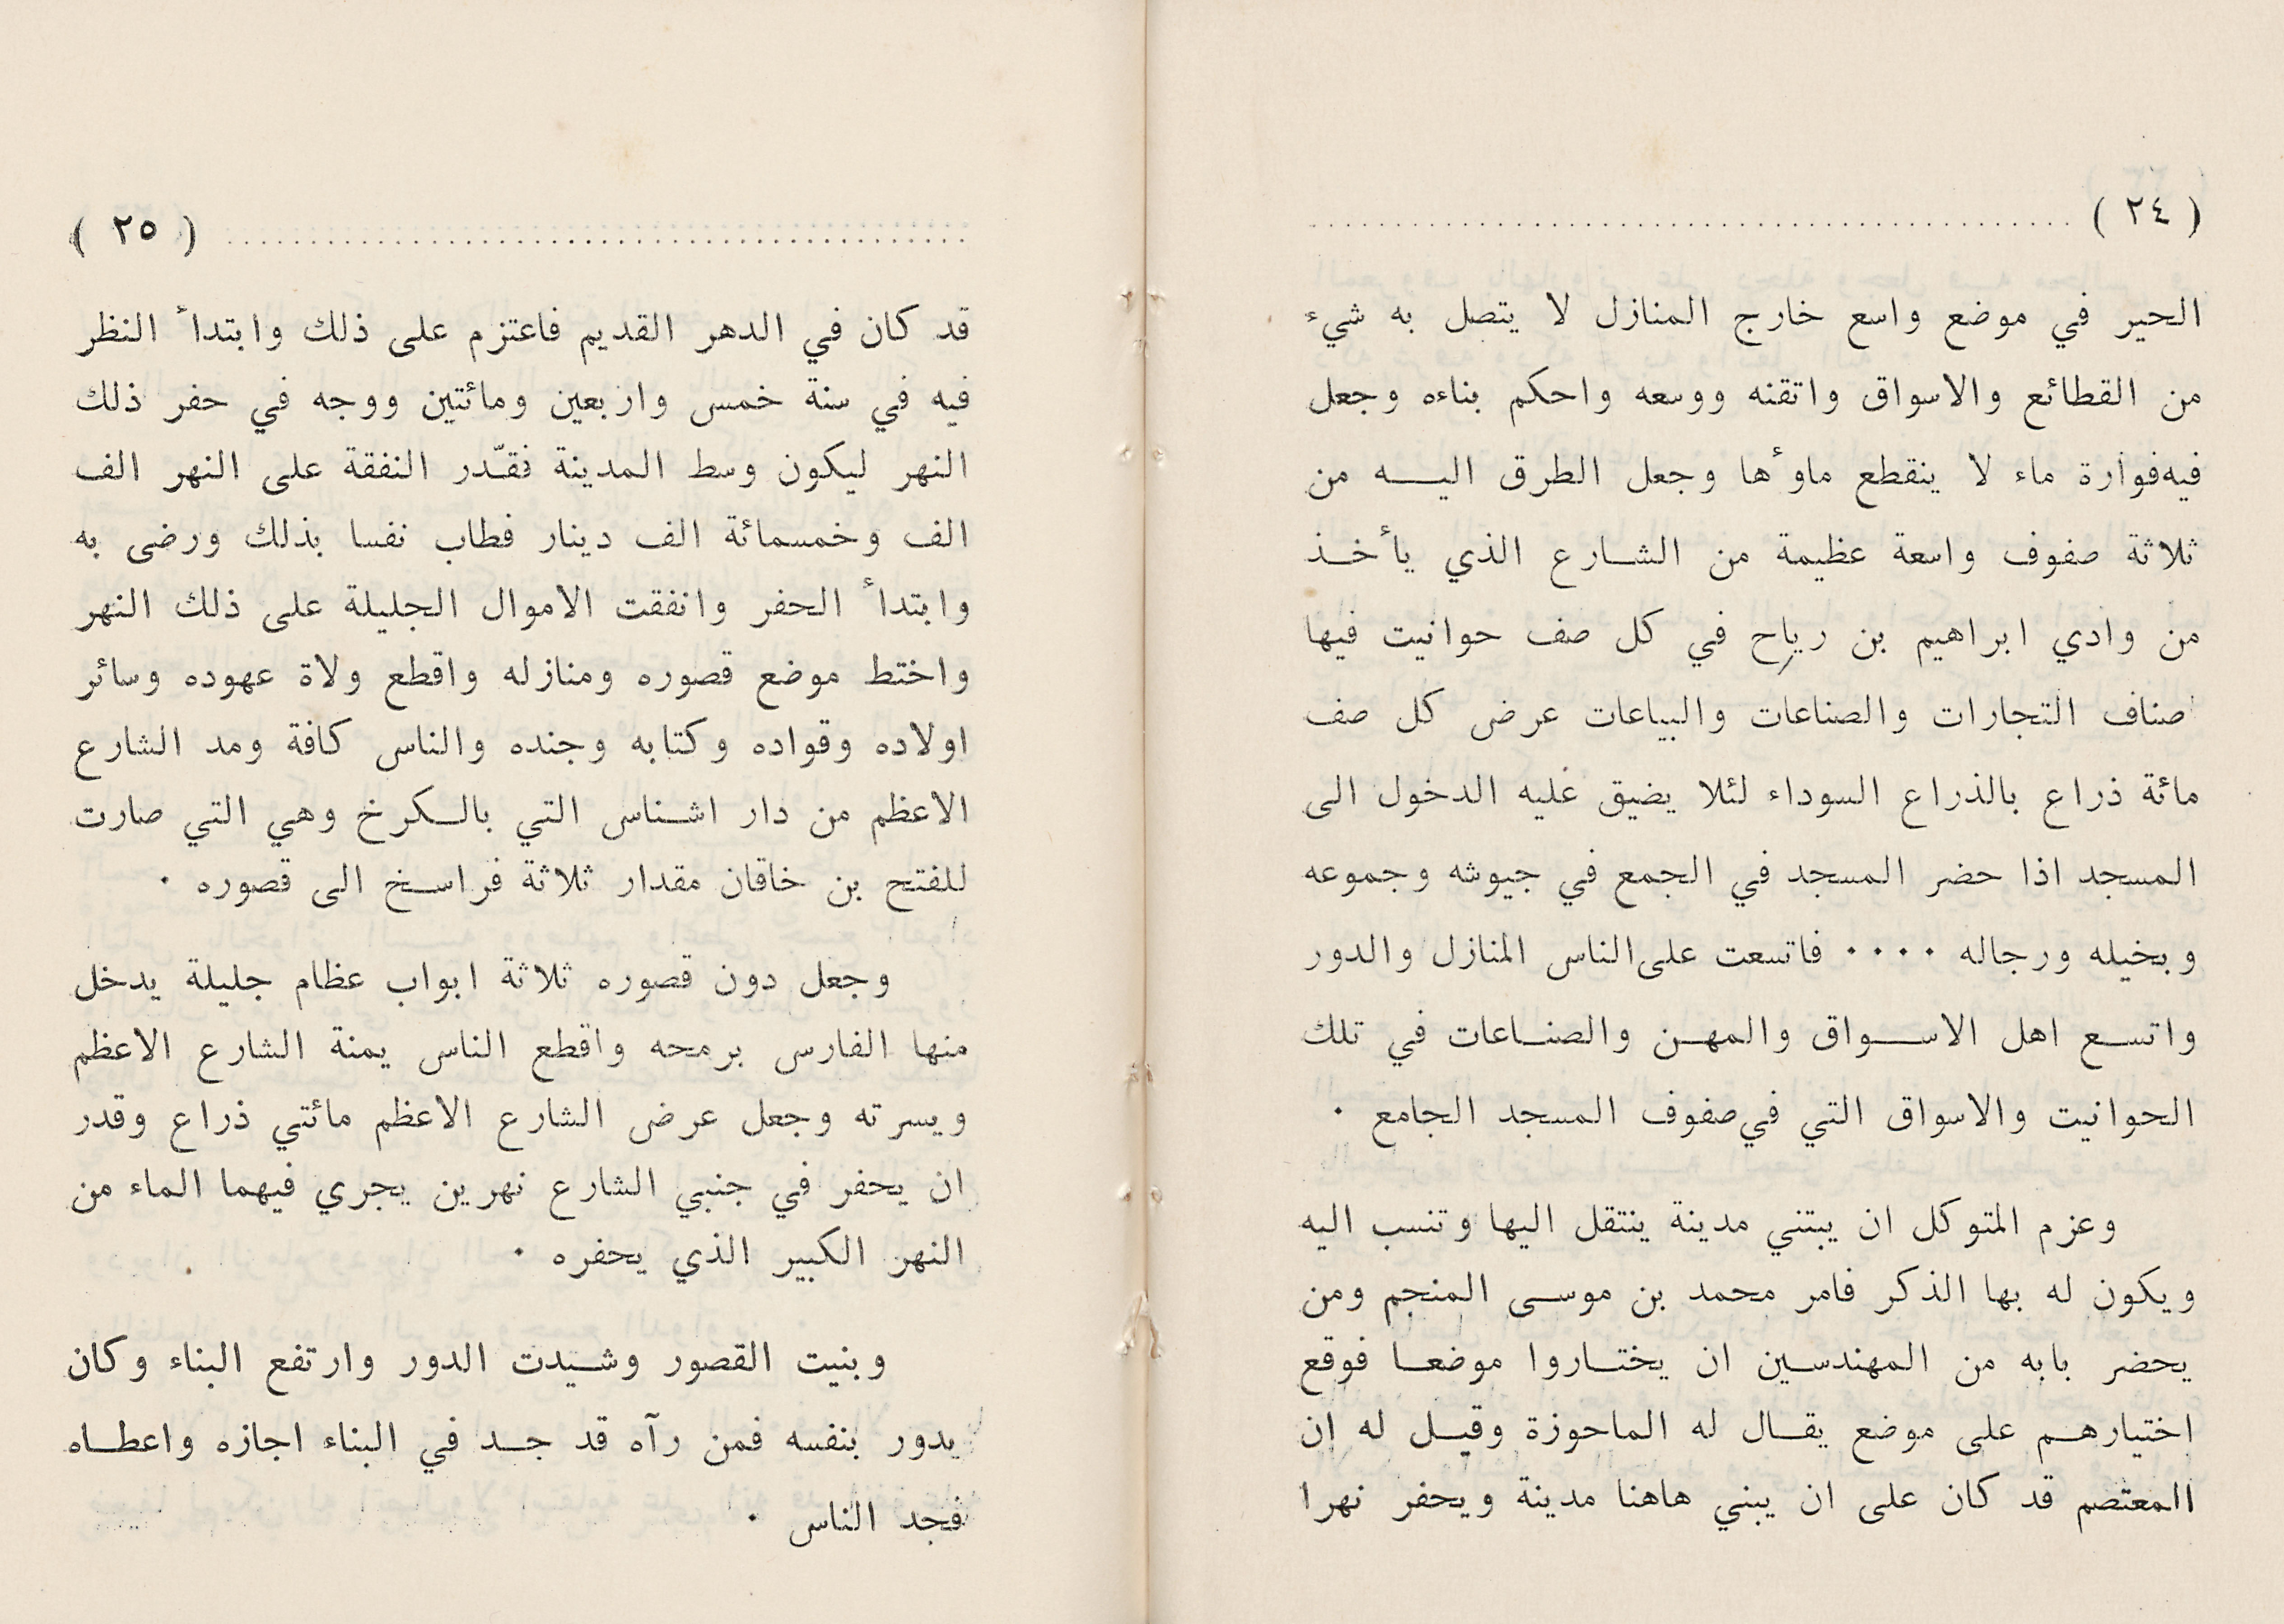 ( ٢٤ )
الحير في موضع واسع خارج المنازل لا يتصل به شيء
من القطائع والاسواق واتقنه ووسعه واحكم بناءه وجعل
فيه فوارة ماء لا ينقطع ماوٴها وجعل الطرق اليه من
ثلاثة صفوف واسعة عظيمة من الشارع الذي يأخذ
من وادي ابراهيم بن رياح في كل صف حوانيت فيها
اصناف التجارات والصناعات والبياعات عرض كل صف
مائة ذراع بالذراع السوداء لئلا يضيق عليه الدخول الى
المسجد اذا حضر المسجد في الجمع في جيوشه وجموعه
وبخيله ورجاله ٠٠٠٠ فاتسعت على الناس المنازل والدور
واتسع اهل الاسواق والمهن والصناعات في تلك
الحوانيت والاسواق التي في صفوف المسجد الجامع ٠
وعزم المتوكل ان يبتني مدينة ينتقل اليها وتنسب اليه
ويكون له بها الذكر فامر محمد بن موسى المنجم ومن
يحضر بابه من المهندسين ان يختاروا موضعا فوقع
اختيارهم على موضع يقال له الماحوزة وقيل له ان
المعتصم قد كان على ان يبني هاهنا مدينة ويحفر نهرا
( ٢٥ )
قد كان في الدهر القديم فاعتزم على ذلك وابتدأ النظر
فيه في سنة خمس واربعين ومائتين ووجه في حفر ذلك
النهر ليكون وسط المدينة فقدّر النفقة على النهر الف
الف وخمسمائة الف دينار فطاب نفسا بذلك ورضى به
وابتدأ الحفر وانفقت الاموال الجليلة على ذلك النهر
واختط موضع قصوره ومنازله واقطع ولاة عهوده وسائر
اولاده وقواده وكتابه وجنده والناس كافة ومد الشارع
الاعظم من دار اشناس التي بالكرخ وهي التي صارت
للفتح بن خاقان مقدار ثلاثة فراسخ الى قصوره ٠
وجعل دون قصوره ثلاثة ابواب عظام جليلة يدخل
منها الفارس برمحه واقطع الناس يمنة الشارع الاعظم
ويسرته وجعل عرض الشارع الاعظم مائتي ذراع وقدر
ان يحفر في جنبي الشارع نهرين يجري فيهما الماء من
النهر الكبير الذي يحفره ٠
وبنيت القصور وشيدت الدور وارتفع البناء وكان
يدور بنفسه فمن رآه قد جد في البناء اجازه واعطاه
فجد الناس ٠